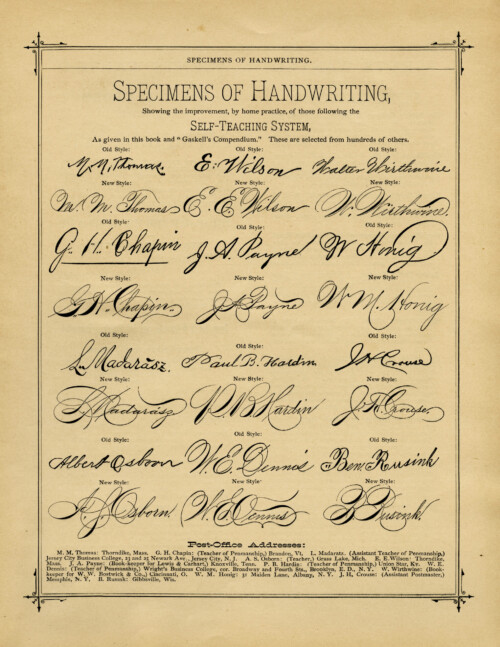 SPECIMENS OF HANDWRITING.
SPECIMENS OF HANDWRITING,
Showing the improvement, by home practice, of those following the
SELF-TEACHING SYSTEM,
As given in this book and "Gaskell's Compendium." These are selected from hundreds of others.
Old Style: Old Style: Old Style:
M. M. Thomas. E. Wilson Walter Wirthwine
New Style: New Style: New Style:
M. M. Thomas E. E. Wilson W. Wirthwine
Old Style: Old Style: Old Style:
G. H. Chapin J. A. Payne W Honig
New Style: New Style: New Style:
G. H. Chapin. J A Payne W M. Honig
Old Style: Old Style: Old Style:
L. Madarász. Paul B. Hardin J H Crouse
New Style: New Style: New Style:
L. Madarász P. B Hardin J. H. Crouse.
Old Style: Old Style: Old Style:
Albert Osborn W. E. Dennis Ben. Rusink
New Style: New Style: New Style:
A. S. Osborn. W. E. Dennis B Rusink
Post-Office Addresses:
M. M. Thomas: Thorndike, Mass. G. H. Chapin: (Teacher of Penmanship,) Brandon, Vt. L. Madarasz. (Assistant Teacher of Penmanship,)
Jersey City Business College, 23 and 25 Newark Ave., Jersey City, N. J. A. S. Osborn: (Teacher,) Grass Lake, Mich. E. E. Wilson: Thorndike,
Mass. J. A. Payne: (Book-keeper for Lewis & Carhart,) Knoxville, Tenn. P. B. Hardin: (Teacher of Penmanship,) Union Star, Ky. W. E.
Dennis: (Teacher of Penmanship,) Wright's Business College, cor. Broadway and Fourth Sts., Brooklyn, E. D., N. Y. W. Wirthwine: (Book-
keeper for W. W. Bostwick & Co.,) Cincinnati, O. W. M. Honig: 31 Maiden Lane, Albany, N. Y. J. H. Crouse: (Assistant Postmaster,)
Memphis, N. Y. B. Rusink: Gibbsville, Wis.